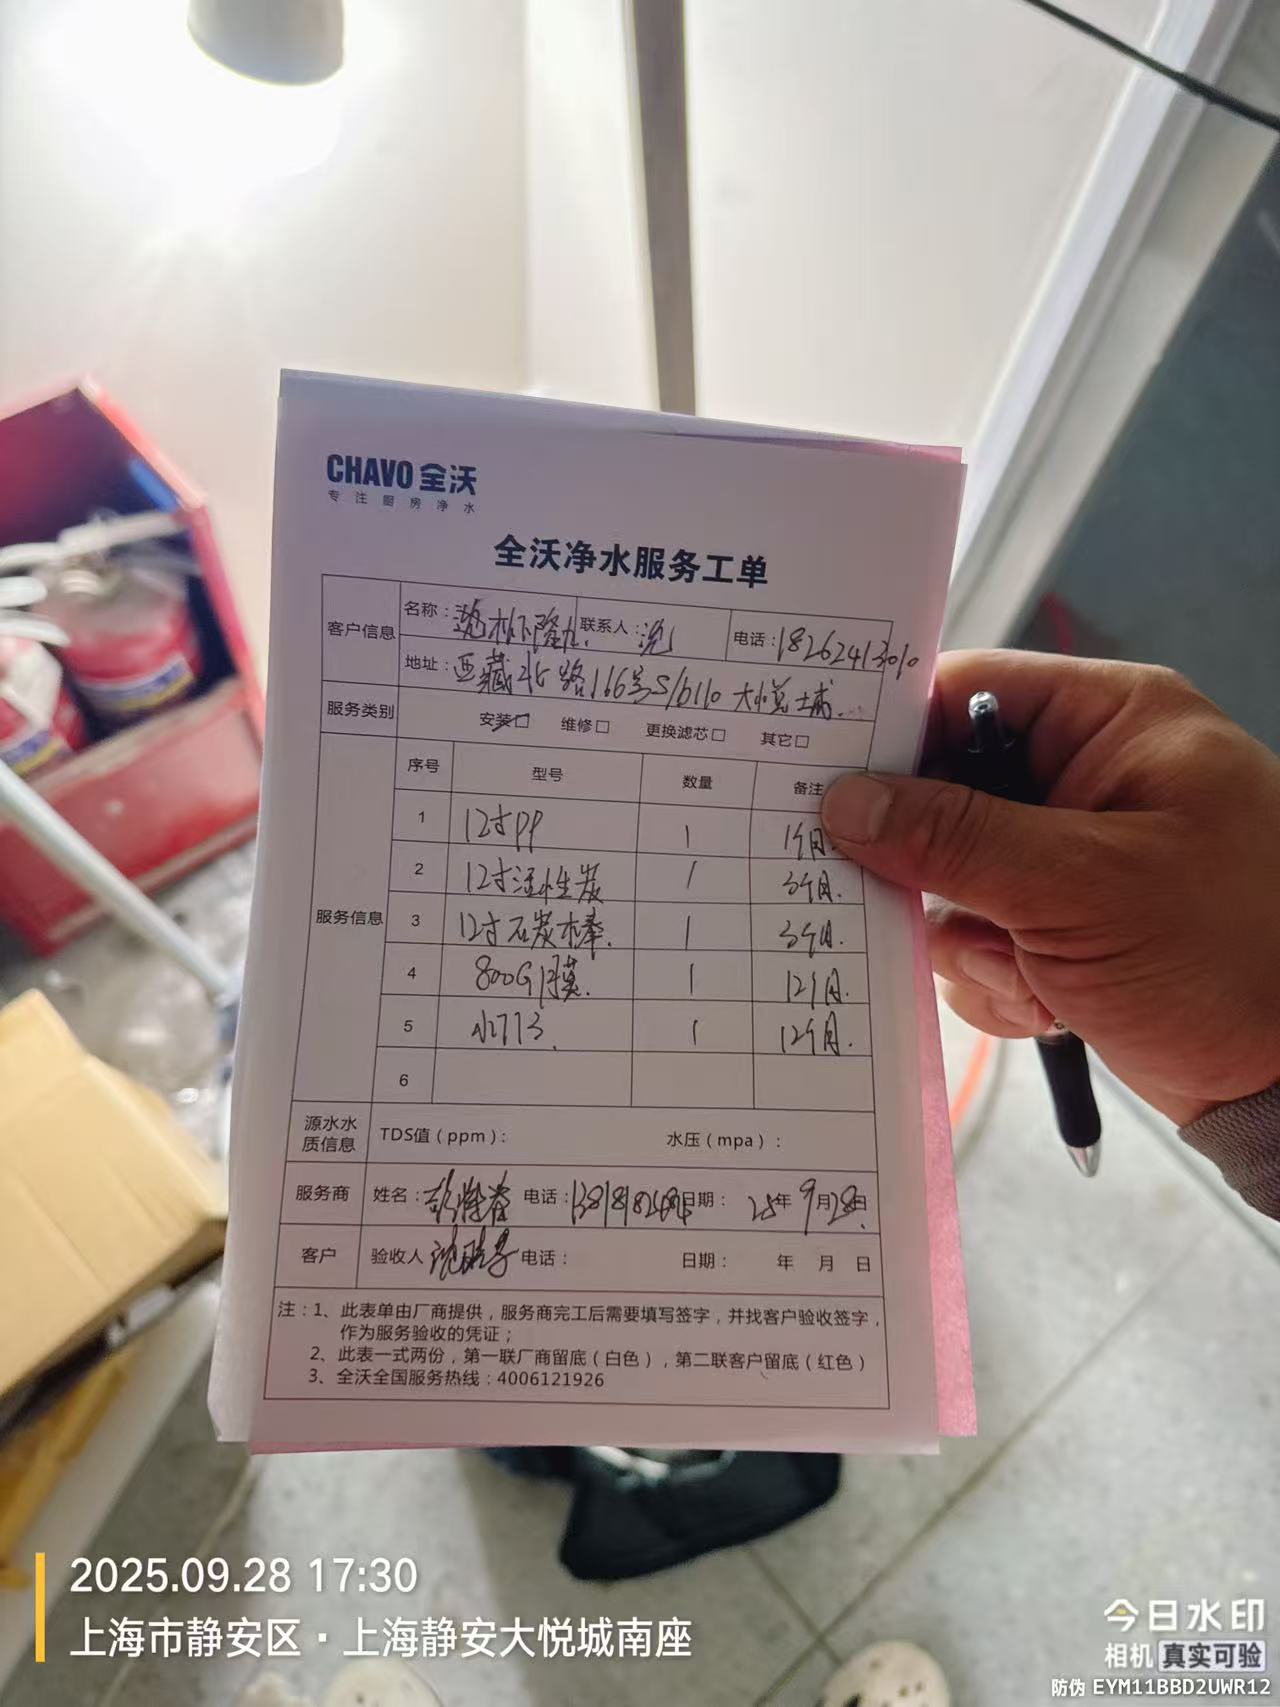 CHAVO 全沃
专注厨房净水
全沃净水服务工单
客户信息 名称： 联系人： 电话：18262413010
地址：西藏北路166号S/B110 大悦城.
服务类别 安装 维修 更换滤芯 其它
服务信息 序号 型号 数量 备注
1 12寸PP 1 1个月.
2 12寸活性炭 1 3个月.
3 12寸石炭棒. 1 3个月.
4 800G膜. 1 12个月.
5 1 12个月.
6
源水水质信息 TDS值（ppm）： 水压（mpa）：
服务商 姓名： 电话： 日期： 25年 9月28日
客户 验收人 电话： 日期： 年 月 日
注：1、此表单由厂商提供，服务商完工后需要填写签字，并找客户验收签字，
作为服务验收的凭证；
2、此表一式两份，第一联厂商留底（白色），第二联客户留底（红色）
3、全沃全国服务热线：4006121926
2025.09.28 17:30
上海市静安区·上海静安大悦城南座
今日水印
相机 真实可验
防伪 EYM11BBD2UWR12